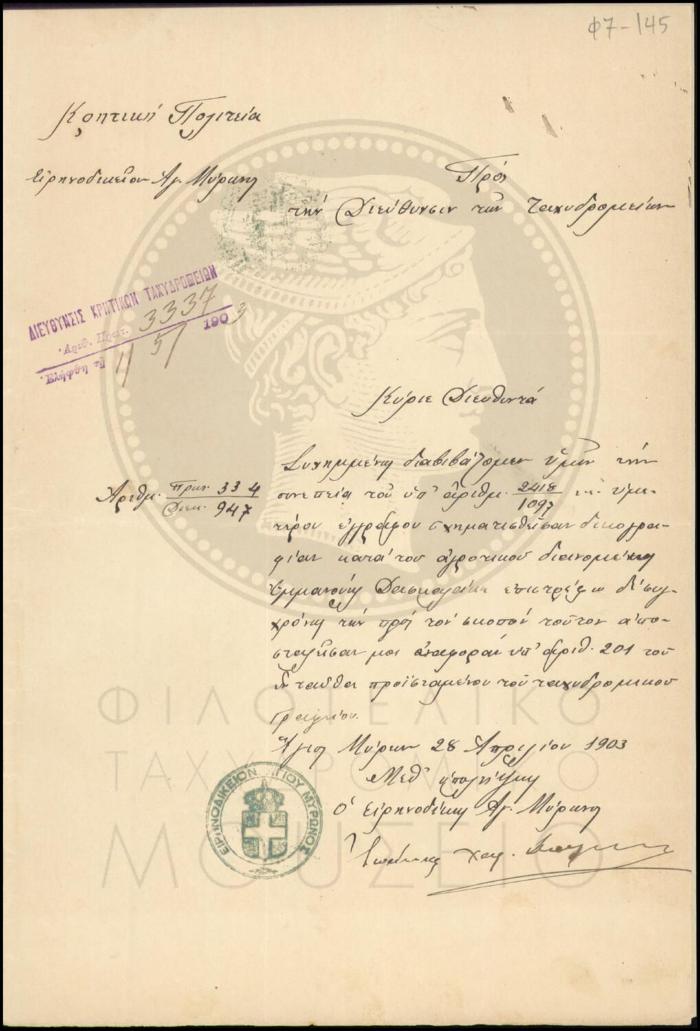 Φ7-145
Κρητική Πολιτεία
Ειρηνοδικείον Αγ. Μύρωνος
Προς
την Διεύθυνσιν των ταχυδρομείων
ΔΙΕΥΘΥΝΣΙΣ ΚΡΗΤΙΚΩΝ ΤΑΧΥΔΡΟΜΕΙΩΝ
Αριθ. Πρωτ. 3337
1903
Κύριε Διευθυντά
Αριθμ. Πρωτ. 334
Διεκ. 947
Συνημμένως διαβιβάζομεν υμίν την
συνεπεία του υπ' αριθμ. 2418/1097 υμε-
τέρου εγγράφου σχηματισθείσαν δικογρα-
φίαν κατά του αγροτικού διανομέως
Εμμανουήλ επιστρέφω δε συγ-
χρόνως την προς τον σκοπόν τούτον απο-
σταλείσαν μοι αναφοράν υπ' αριθ. 201 του
ενταύθα προϊσταμένου του ταχυδρομικού
γραφείου.
Άγιος Μύρων 28 Απριλίου 1903
Μεθ' υπολήψεως
Ο Ειρηνοδίκης Αγ. Μύρωνος
Ιωάννης
ΕΙΡΗΝΟΔΙΚΕΙΟΝ ΑΓΙΟΥ ΜΥΡΩΝΟΣ
ΦΙΛΟΤΕΛΙΚΟ
ΤΑΧΥΔΡΟΜΙΚΟ
ΜΟΥΣΕΙΟ